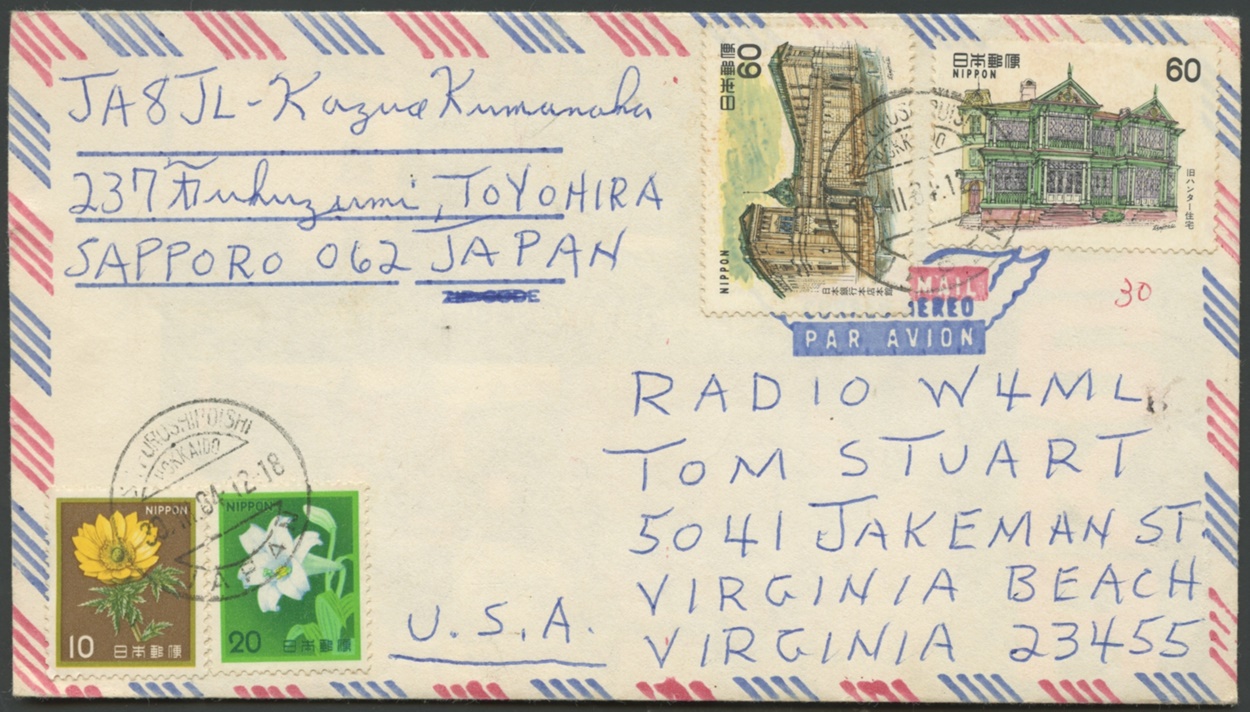 JA8JL - Kazuo Kumanaka
237 Fukuzumi, TOYOHIRA
SAPPORO 062 JAPAN
日本郵便 60
NIPPON
日本銀行本店本館
日本郵便 60
NIPPON
旧ハンター住宅
HOKKAIDO
MAIL
AEREO
PAR AVION
30
RADIO W4ML
TOM STUART
5041 JAKEMAN ST.
VIRGINIA BEACH
VIRGINIA 23455
U.S.A.
HOKKAIDO
30.III.84.12-18
JAPAN
NIPPON
10 日本郵便
NIPPON
20 日本郵便